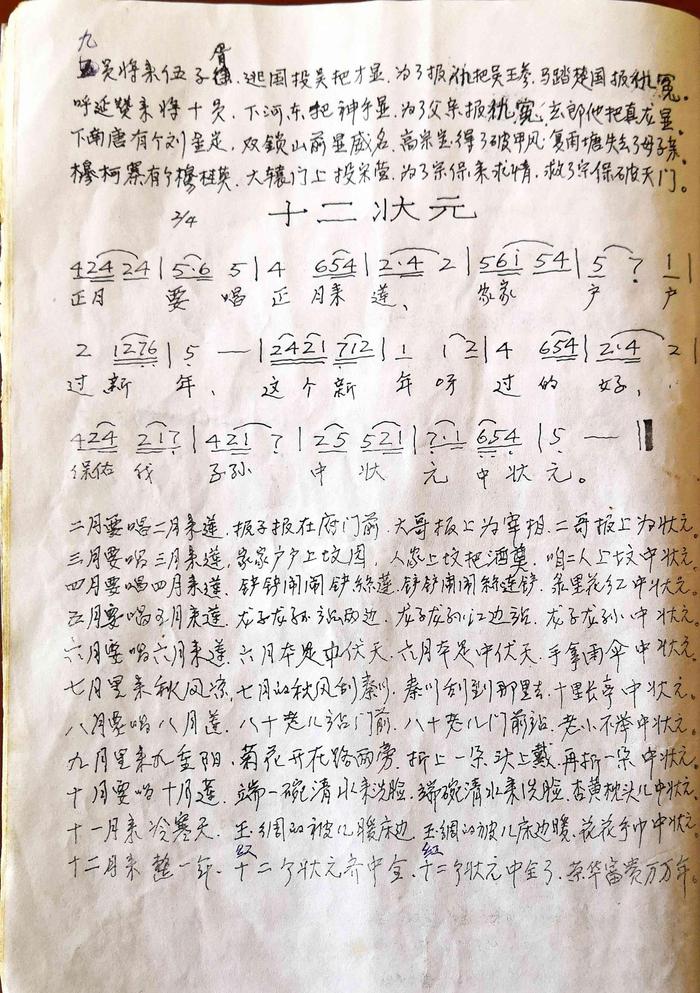 九
员将来伍子胥，逃国投吴把才显，为了报仇把吴王参，马踏楚国报仇冤。
呼延赞来将十员，下河东把神手显，为了父亲报仇冤，玄郎他把真龙显。
下南唐有个刘金定，双锁山前显威名，高宗宝得了破甲风，复雨塘失去了母子亲。
穆柯寨有个穆桂英，大辕门上投宋营，为了宗保来求情，救了宗保破天门。
2/4 十二状元
424 24 | 5·6 5 | 4 654 | 2·4 2 | 561 54 | 5 7 1 |
正月 要 唱 正 月来 莲、 家家 户 户
2 1276 | 5 — | 2421 712 | 1 1 2 | 4 654 | 2·4 2 |
过 新 年、 这个新 年 呀 过 的 好，
424 217 | 421 7 | 25 521 | 7·1 654 | 5 — ‖
保佑 我 子孙 中 状 元 中 状 元。
二月要唱二月来莲，报子报在府门前，大哥报上为宰相，二哥报上为状元。
三月要唱三月来莲，家家户户上坟园，人家上坟把酒奠，咱二人上坟中状元。
四月要唱四月来莲、铲铲闹闹铲丝莲，铲铲闹闹丝莲铲，条里花红中状元。
五月要唱五月来莲、龙子龙孙站两边，龙子龙孙江边站，龙子龙孙小中状元。
六月要唱六月来莲、六月本是中伏天，六月本是中伏天，手拿雨伞中状元。
七月里来秋风凉，七月的秋风刮秦川，秦川刮到那里去，十里长亭中状元。
八月要唱八月莲、八十老儿站门前，八十老儿门前站，老小不举中状元。
九月里来九重阳，菊花开在路两旁，折上一朵头上戴，再折一朵中状元。
十月要唱十月莲、端一碗清水来洗脸，端碗清水来洗脸，杏黄枕头儿中状元。
十一月来冷寒天、玉绸的被儿暖床边，玉绸的被儿床边暖，花花手巾中状元。
红 红
十二月来整一年、十二个状元齐中全，十二个状元中全了，荣华富贵万万年。